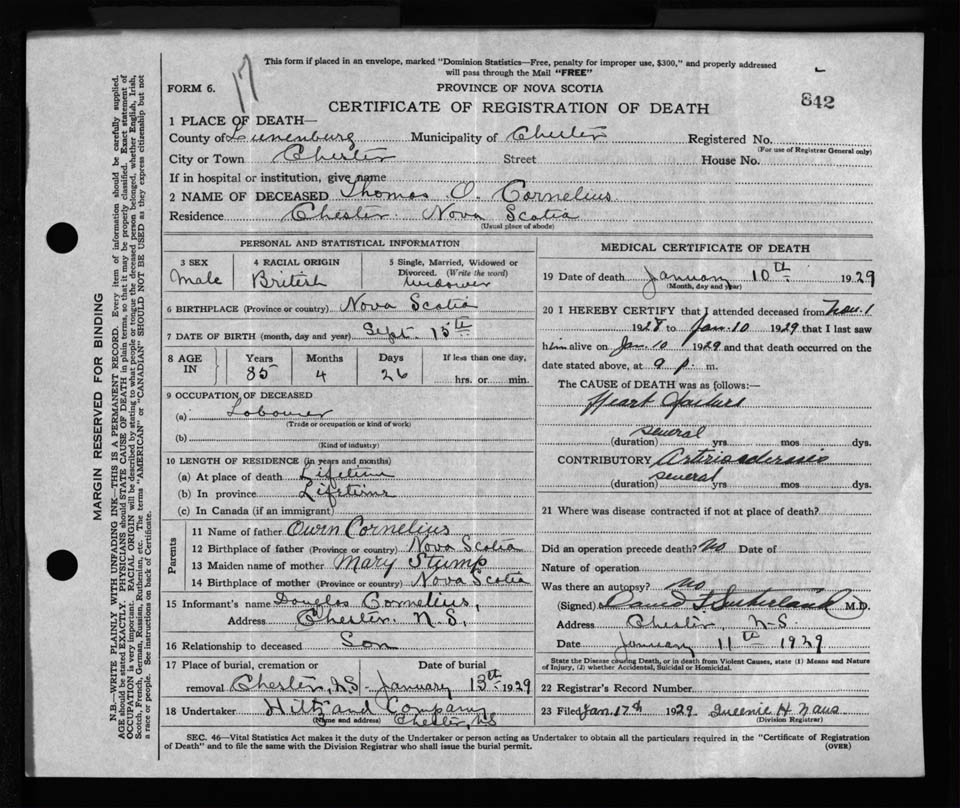 This form if placed in an envelope, marked "Dominion Statistics—Free, penalty for improper use, $300," and properly addressed
will pass through the Mail "FREE"
17
FORM 6.
PROVINCE OF NOVA SCOTIA
842
CERTIFICATE OF REGISTRATION OF DEATH
1 PLACE OF DEATH—
County of Lunenburg Municipality of Chester Registered No.
(For use of Registrar General only)
City or Town Chester Street House No.
If in hospital or institution, give name
2 NAME OF DECEASED Thomas O. Cornelius
Residence Chester. Nova Scotia
(Usual place of abode)
PERSONAL AND STATISTICAL INFORMATION
3 SEX 4 RACIAL ORIGIN 5 Single, Married, Widowed or
Divorced. (Write the word)
Male British Widower
6 BIRTHPLACE (Province or country) Nova Scotia
7 DATE OF BIRTH (month, day and year) Sept. 15th
8 AGE IN Years Months Days If less than one day,
85 4 26 hrs. or min.
9 OCCUPATION OF DECEASED
(a) Labourer
(Trade or occupation or kind of work)
(b)
(Kind of industry)
10 LENGTH OF RESIDENCE (in years and months)
(a) At place of death Lifetime
(b) In province Lifetime
(c) In Canada (if an immigrant)
Parents
11 Name of father Owen Cornelius
12 Birthplace of father (Province or country) Nova Scotia
13 Maiden name of mother Mary Stump
14 Birthplace of mother (Province or country) Nova Scotia
15 Informant's name Douglas Cornelius,
Address Chester. N.S,
16 Relationship to deceased Son
17 Place of burial, cremation or Date of burial
removal Chester, N.S- January 13th 1929
18 Undertaker Hiltz and Company
(Name and address) Chester, N.S
MEDICAL CERTIFICATE OF DEATH
19 Date of death January 10th 1929
(Month, day and year)
20 I HEREBY CERTIFY that I attended deceased from Nov. 1
1928 to Jan. 10 1929 that I last saw
h im alive on Jan. 10 1929 and that death occurred on the
date stated above, at 9 p. m.
The CAUSE of DEATH was as follows:
Heart Failure
(duration) several yrs mos dys.
CONTRIBUTORY Arteriosclerosis
(duration) several yrs mos dys.
21 Where was disease contracted if not at place of death?
Did an operation precede death? No Date of
Nature of operation
Was there an autopsy? No
(Signed) David F Sutherland M.D.
Address Chester, N-S.
Date January 11th 1929
State the Disease causing Death, or in death from Violent Causes, state (1) Means and Nature
of Injury, (2) whether Accidental, Suicidal or Homicidal.
22 Registrar's Record Number
23 Filed Jan. 17th 1929 Queenie H. Naus
(Division Registrar)
SEC. 46—Vital Statistics Act makes it the duty of the Undertaker or person acting as Undertaker to obtain all the particulars required in the "Certificate of Registration
of Death" and to file the same with the Division Registrar who shall issue the burial permit.
(OVER)
MARGIN RESERVED FOR BINDING
N.B—WRITE PLAINLY WITH UNFADING INK—THIS IS A PERMANENT RECORD. Every item of information should be carefully supplied.
AGE should be stated EXACTLY. PHYSICIANS should STATE CAUSE OF DEATH in plain terms, so that it may be properly classified. Exact statement of
OCCUPATION is very important. RACIAL ORIGIN will be described by stating to what people or tongue the deceased person belonged, whether English, Irish,
Scotch, French, German, Russian, Ruthenian, etc. The terms "AMERICAN" or "CANADIAN" SHOULD NOT BE USED as they express citizenship but not
a race or people. See instructions on back of Certificate.